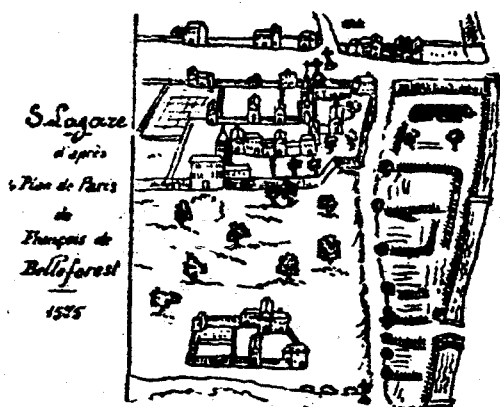 S. Lazare
d'après
Plan de Paris
de
François de
Belleforest
1575